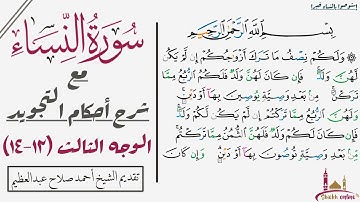 إستوصوا بالنساء خيرا
سُورَةُ النِّسَاءِ
مع
شرح أحكام التجويد
الوجه الثالث (١٢-١٤)
تقديم الشيخ أحمد صلاح عبدالعظيم
بِسْمِ ٱللَّهِ ٱلرَّحْمَٰنِ ٱلرَّحِيمِ
۞ وَلَكُمْ نِصْفُ مَا تَرَكَ أَزْوَٰجُكُمْ إِن لَّمْ يَكُن
لَّهُنَّ وَلَدٌ فَإِن كَانَ لَهُنَّ وَلَدٌ فَلَكُمُ ٱلرُّبُعُ مِمَّا
تَرَكْنَ مِنۢ بَعْدِ وَصِيَّةٍ يُوصِينَ بِهَآ أَوْ دَيْنٍ
وَلَهُنَّ ٱلرُّبُعُ مِمَّا تَرَكْتُمْ إِن لَّمْ يَكُن لَّكُمْ وَلَدٌ
فَإِن كَانَ لَكُمْ وَلَدٌ فَلَهُنَّ ٱلثُّمُنُ مِمَّا تَرَكْتُم
مِّنۢ بَعْدِ وَصِيَّةٍ تُوصُونَ بِهَآ أَوْ دَيْنٍ وَإِن كَانَ
Sheikh online